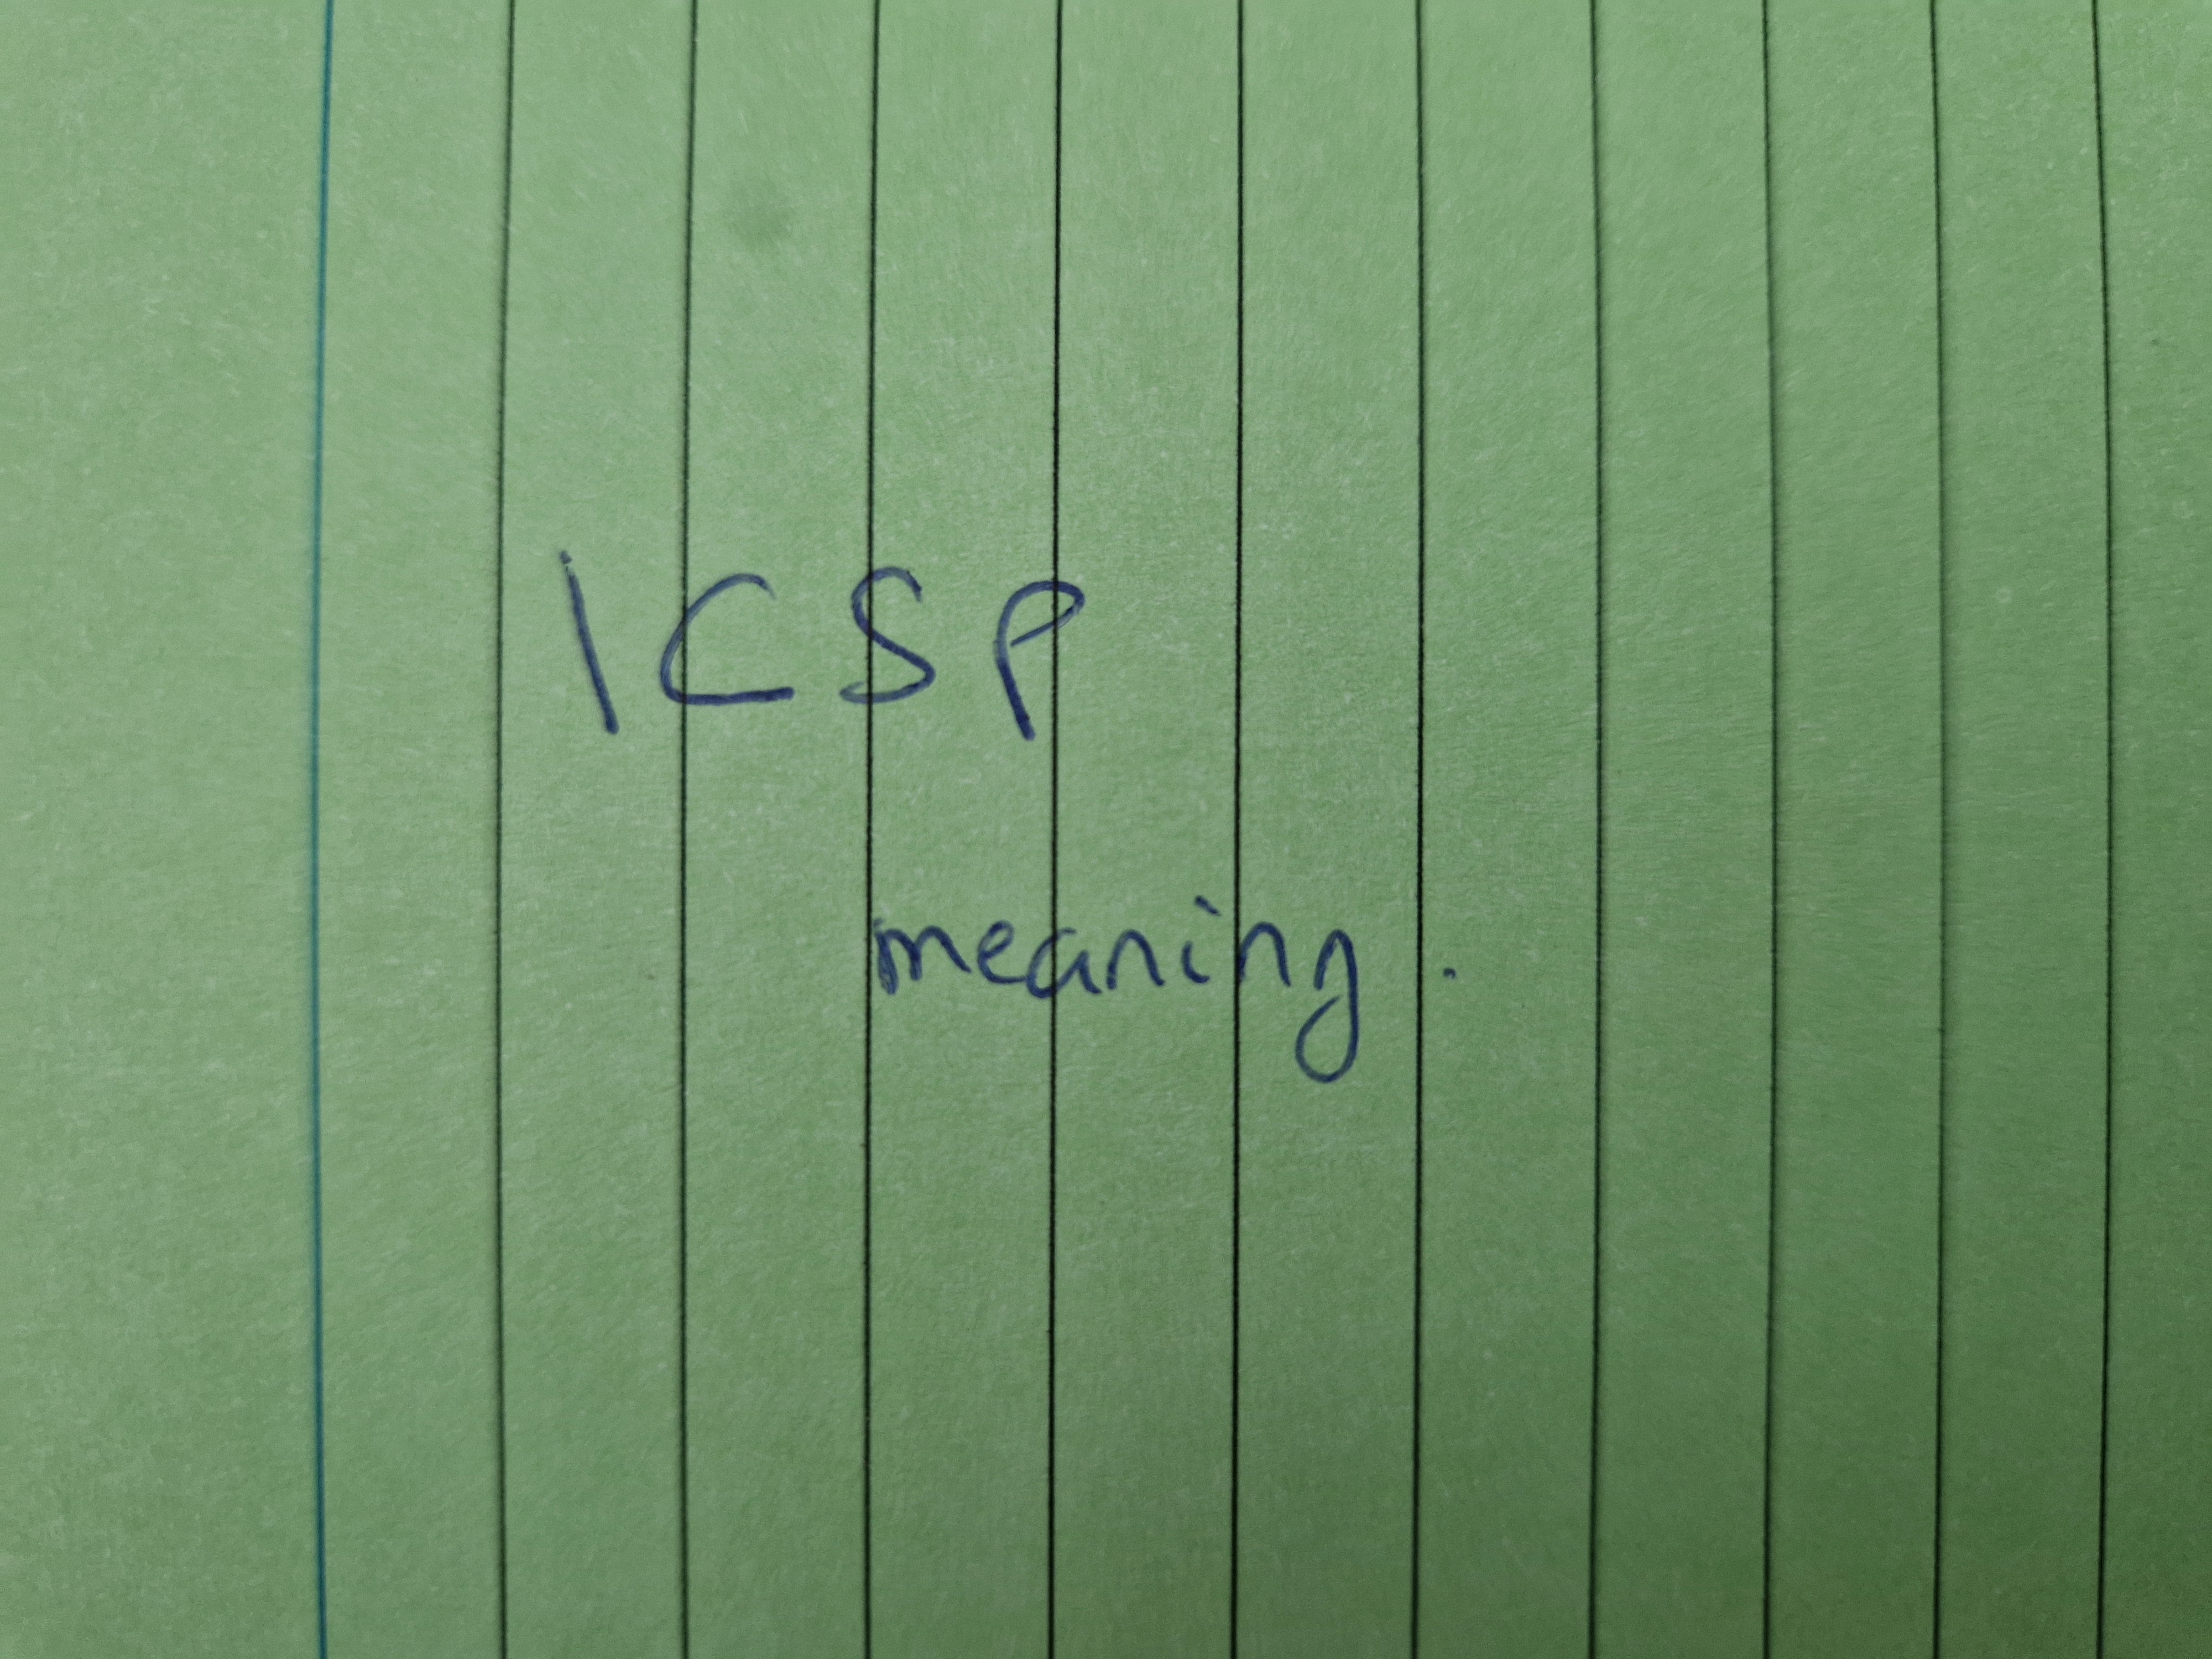 ICSP
meaning.